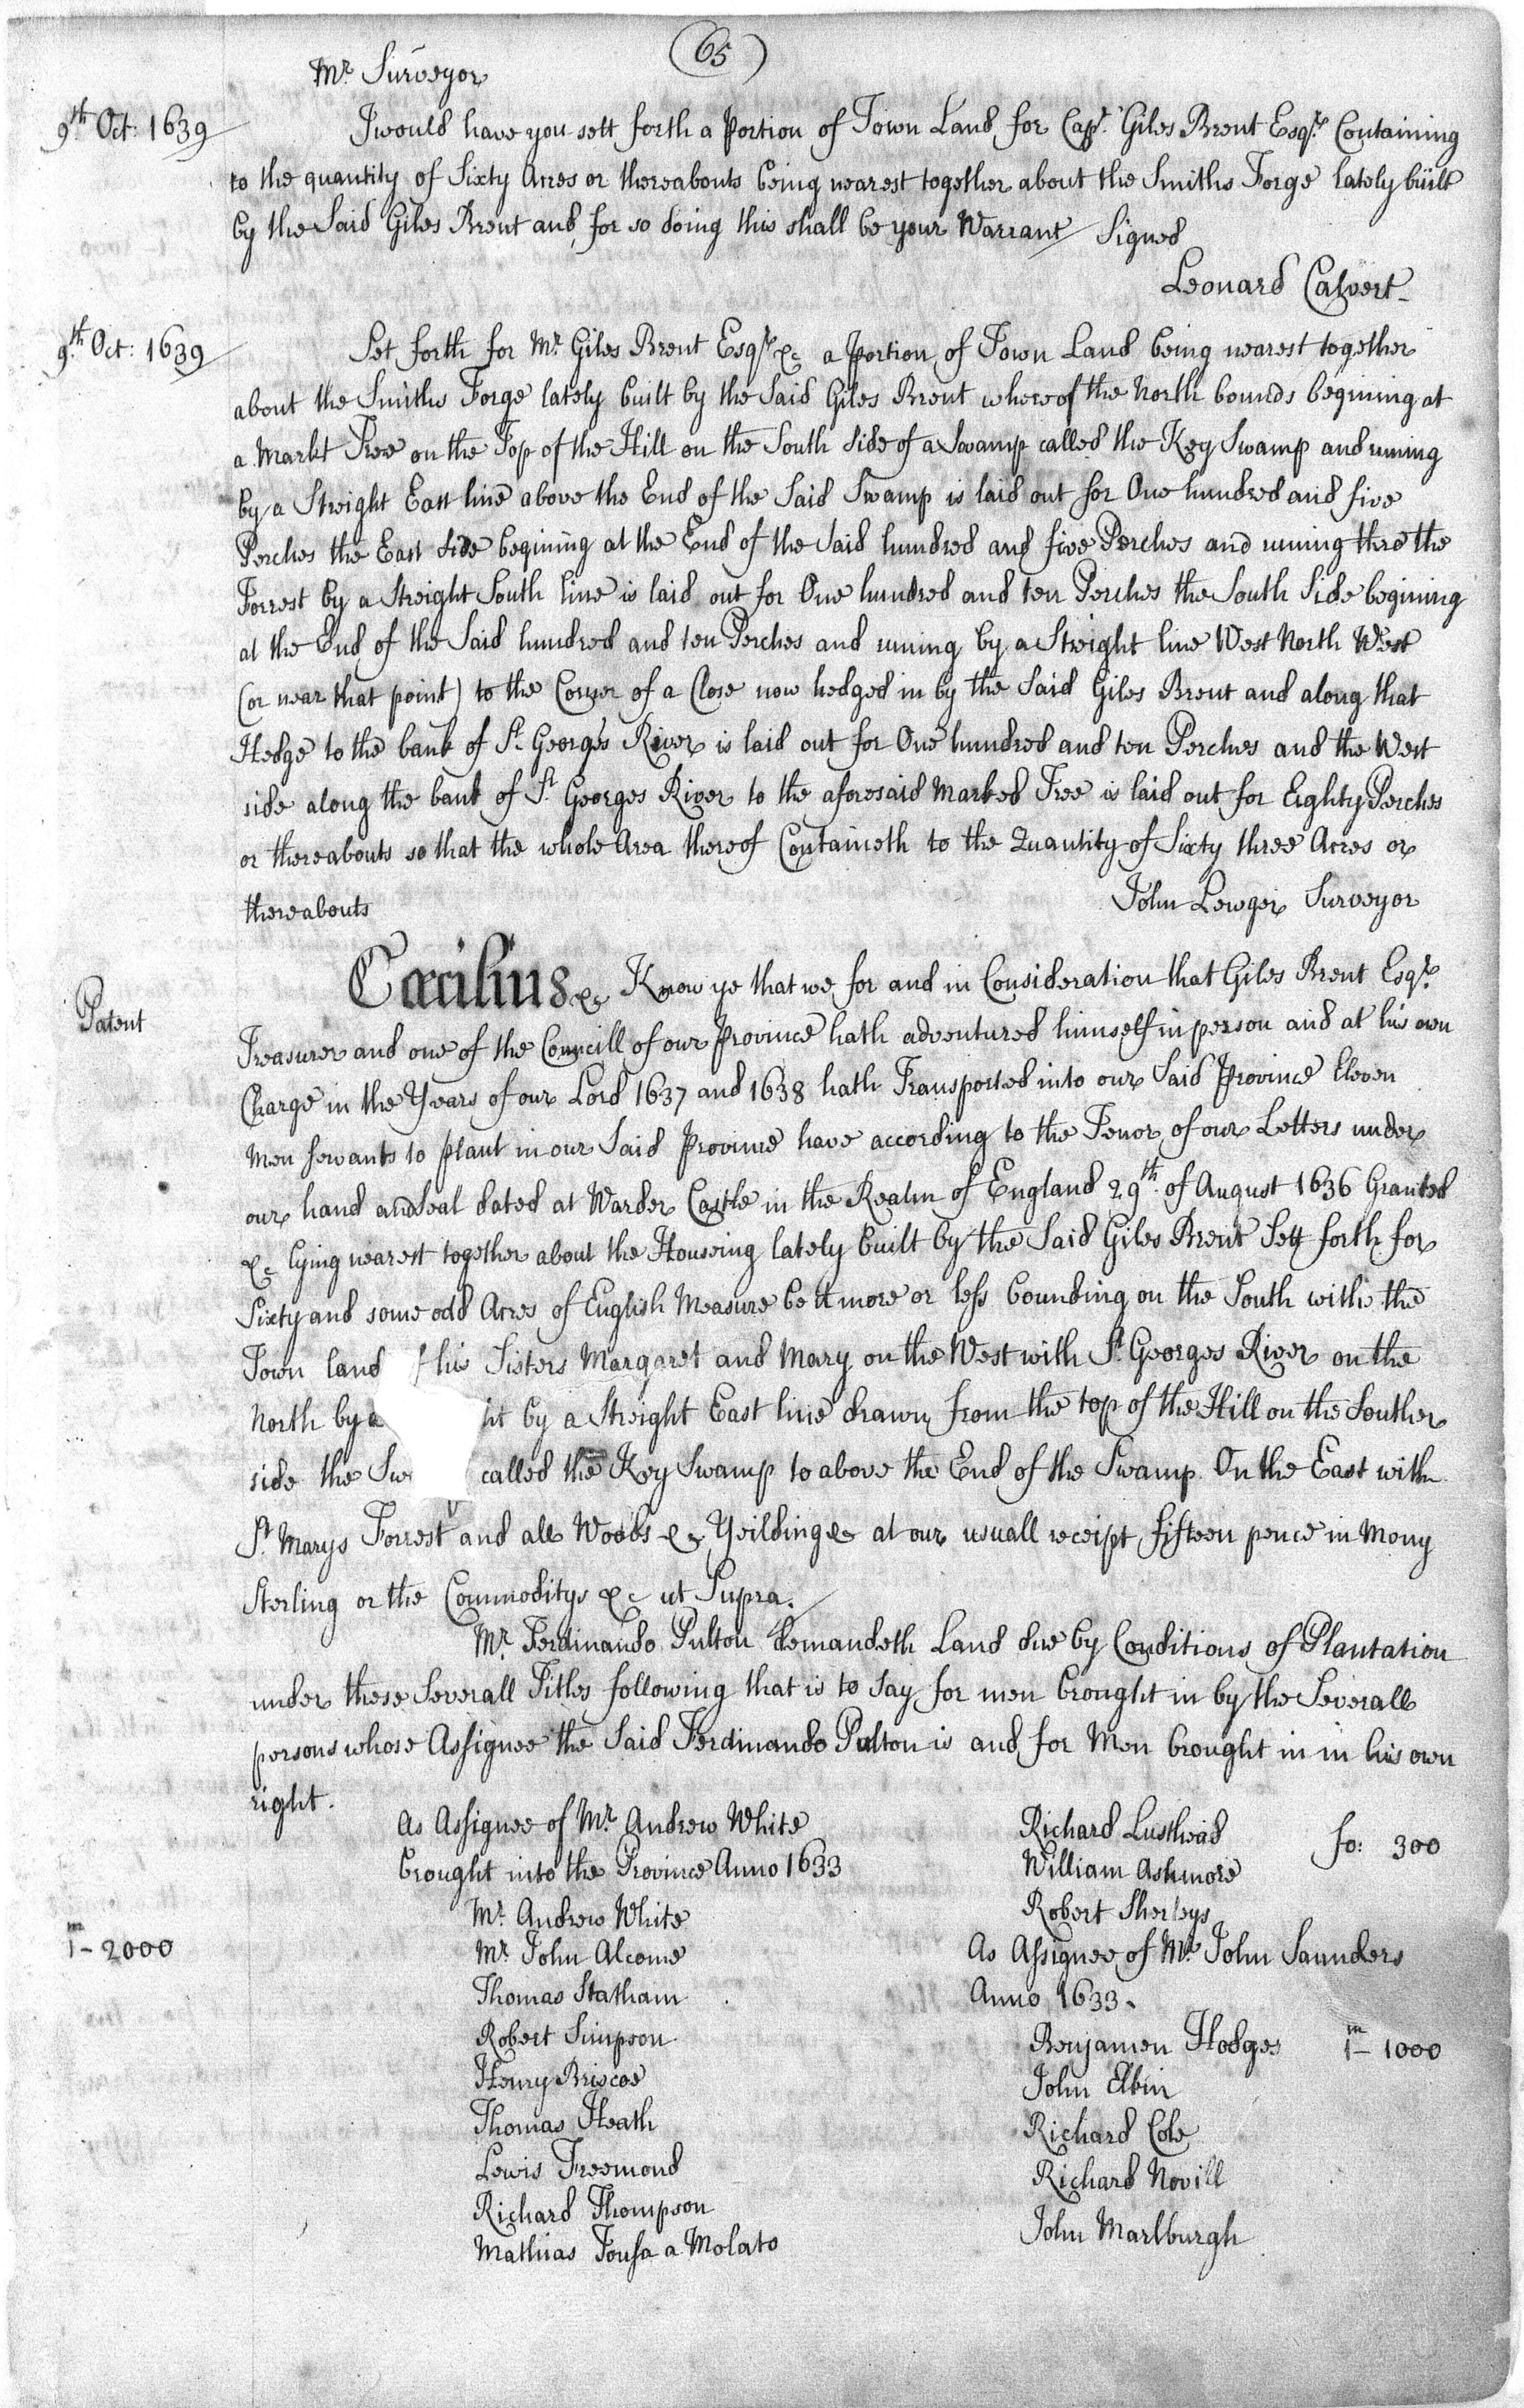 (65)
Mr. Surveyor
9th Oct: 1639
I would have you sett forth a Portion of Town Land for Capt. Giles Brent Esqr. Containing
to the quantity of Sixty Acres or thereabouts being nearest together about the Smiths Forge lately built
by the Said Giles Brent and for so doing this shall be your Warrant Signed
Leonard Calvert
9th Oct: 1639
Set forth for Mr. Giles Brent Esqr. &c a Portion of Town Land being nearest together
about the Smiths Forge lately built by the Said Giles Brent whereof the North bounds begining at
a Markt Tree on the Top of the Hill on the South Side of a Swamp called the Key Swamp and runing
by a Streight East line above the End of the Said Swamp is laid out for One hundred and five
Perches the East Side begining at the End of the Said hundred and five Perches and runing thro the
Forrest by a Streight South line is laid out for One hundred and ten Perches the South Side begining
at the End of the Said hundred and ten Perches and runing by a Streight line West North West
(or near that point) to the Corner of a Close now hedged in by the Said Giles Brent and along that
Hedge to the bank of St. Georges River is laid out for One hundred and ten Perches and the West
side along the bank of St. Georges River to the aforesaid Marked Tree is laid out for Eighty Perches
or thereabouts so that the whole Area thereof Containeth to the Quantity of Sixty three Acres or
thereabouts
John Lewger Surveyor
Patent
Cœcilius &c Know ye that we for and in Consideration that Giles Brent Esqr.
Treasurer and one of the Councill of our Province hath adventured himself in person and at his own
Charge in the Years of our Lord 1637 and 1638 hath Transported into our Said Province Eleven
Men servants to plant in our Said Province have according to the Tenor of our Letters under
our hand and Seal dated at Warder Castle in the Realm of England 29th. of August 1636 Granted
&c lying nearest together about the Houseing lately built by the Said Giles Brent Sett forth for
Sixty and some odd Acres of English Measure be it more or less bounding on the South with the
Town land his Sisters Margaret and Mary on the West with St. Georges River on the
North by a by a Streight East line drawn from the top of the Hill on the Souther
side the Sw called the Key Swamp to above the End of the Swamp On the East with
St. Marys Forrest and all Woods &c Yeilding &c at our usuall receipt fifteen pence in Mony
Sterling or the Commoditys &c ut Supra.
Mr. Ferdinando Pulton demandeth Land due by Conditions of Plantation
under these Severall Titles following that is to say for men brought in by the Severall
persons whose Assignee the Said Ferdinando Pulton is and for Men brought in in his own
right.
As Assignee of Mr. Andrew White
brought into the Province Anno 1633
Mr. Andrew White
1m - 2000
Mr. John Alcome
Thomas Statham
Robert Simpson
Henry Briscoe
Thomas Heath
Lewis Freemond
Richard Thompson
Mathias Tousa a Molato
Richard Lusthead
fo: 300
William Ashmore
Robert Sherleys
As Assignee of Mr. John Saunders
Anno 1633.
Benjamen Hodges 1m - 1000
John Elbin
Richard Cole
Richard Novill
John Marlburgh